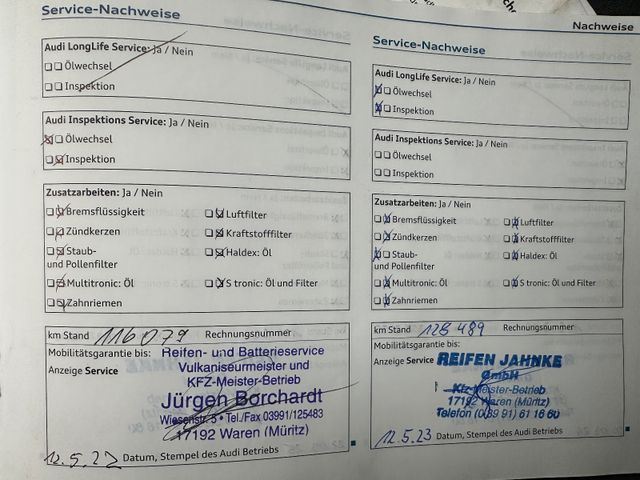 Service-Nachweise
Audi LongLife Service: Ja / Nein
Ölwechsel
Inspektion
Audi Inspektions Service: Ja / Nein
Ölwechsel
Inspektion
Zusatzarbeiten: Ja / Nein
Bremsflüssigkeit
Luftfilter
Zündkerzen
Kraftstofffilter
Staub-
und Pollenfilter
Haldex: Öl
Multitronic: Öl
S tronic: Öl und Filter
Zahnriemen
km Stand 116079 Rechnungsnummer
Mobilitätsgarantie bis:
Anzeige Service
Reifen- und Batterieservice
Vulkaniseurmeister und
KFZ-Meister-Betrieb
Jürgen Borchardt
Wiesenstr. 5 • Tel./Fax 03991/125483
17192 Waren (Müritz)
12.5.22 Datum, Stempel des Audi Betriebs
Nachweise
Service-Nachweise
Audi LongLife Service: Ja / Nein
Ölwechsel
Inspektion
Audi Inspektions Service: Ja / Nein
Ölwechsel
Inspektion
Zusatzarbeiten: Ja / Nein
Bremsflüssigkeit
Luftfilter
Zündkerzen
Kraftstofffilter
Staub-
und Pollenfilter
Haldex: Öl
Multitronic: Öl
S tronic: Öl und Filter
Zahnriemen
km Stand 128489 Rechnungsnummer
Mobilitätsgarantie bis:
Anzeige Service
REIFEN JAHNKE
GmbH
Kfz-Meister-Betrieb
17192 Waren (Müritz)
Telefon (039 91) 61 16 60
12.5.23 Datum, Stempel des Audi Betriebs